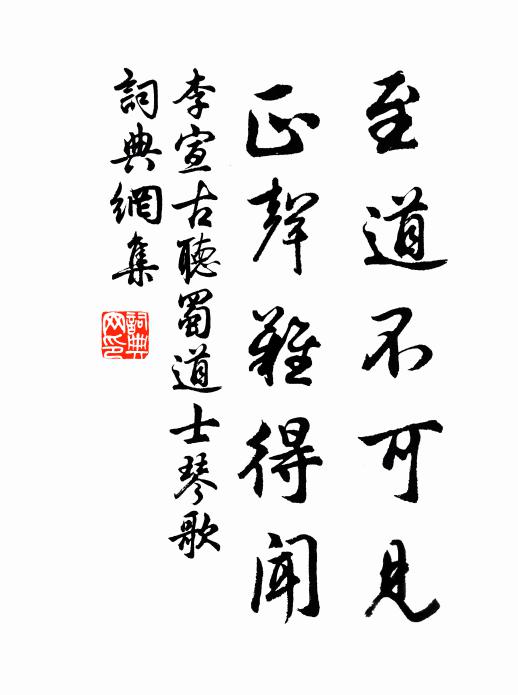 至道不可見
正聲難得聞
李宣古聽蜀道士琴歌
詞典網集
詞典网印